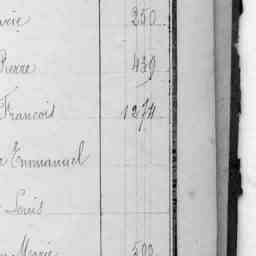 arie 250
Pierre 439
François 1274
Emmanuel
Louis
Marie 500